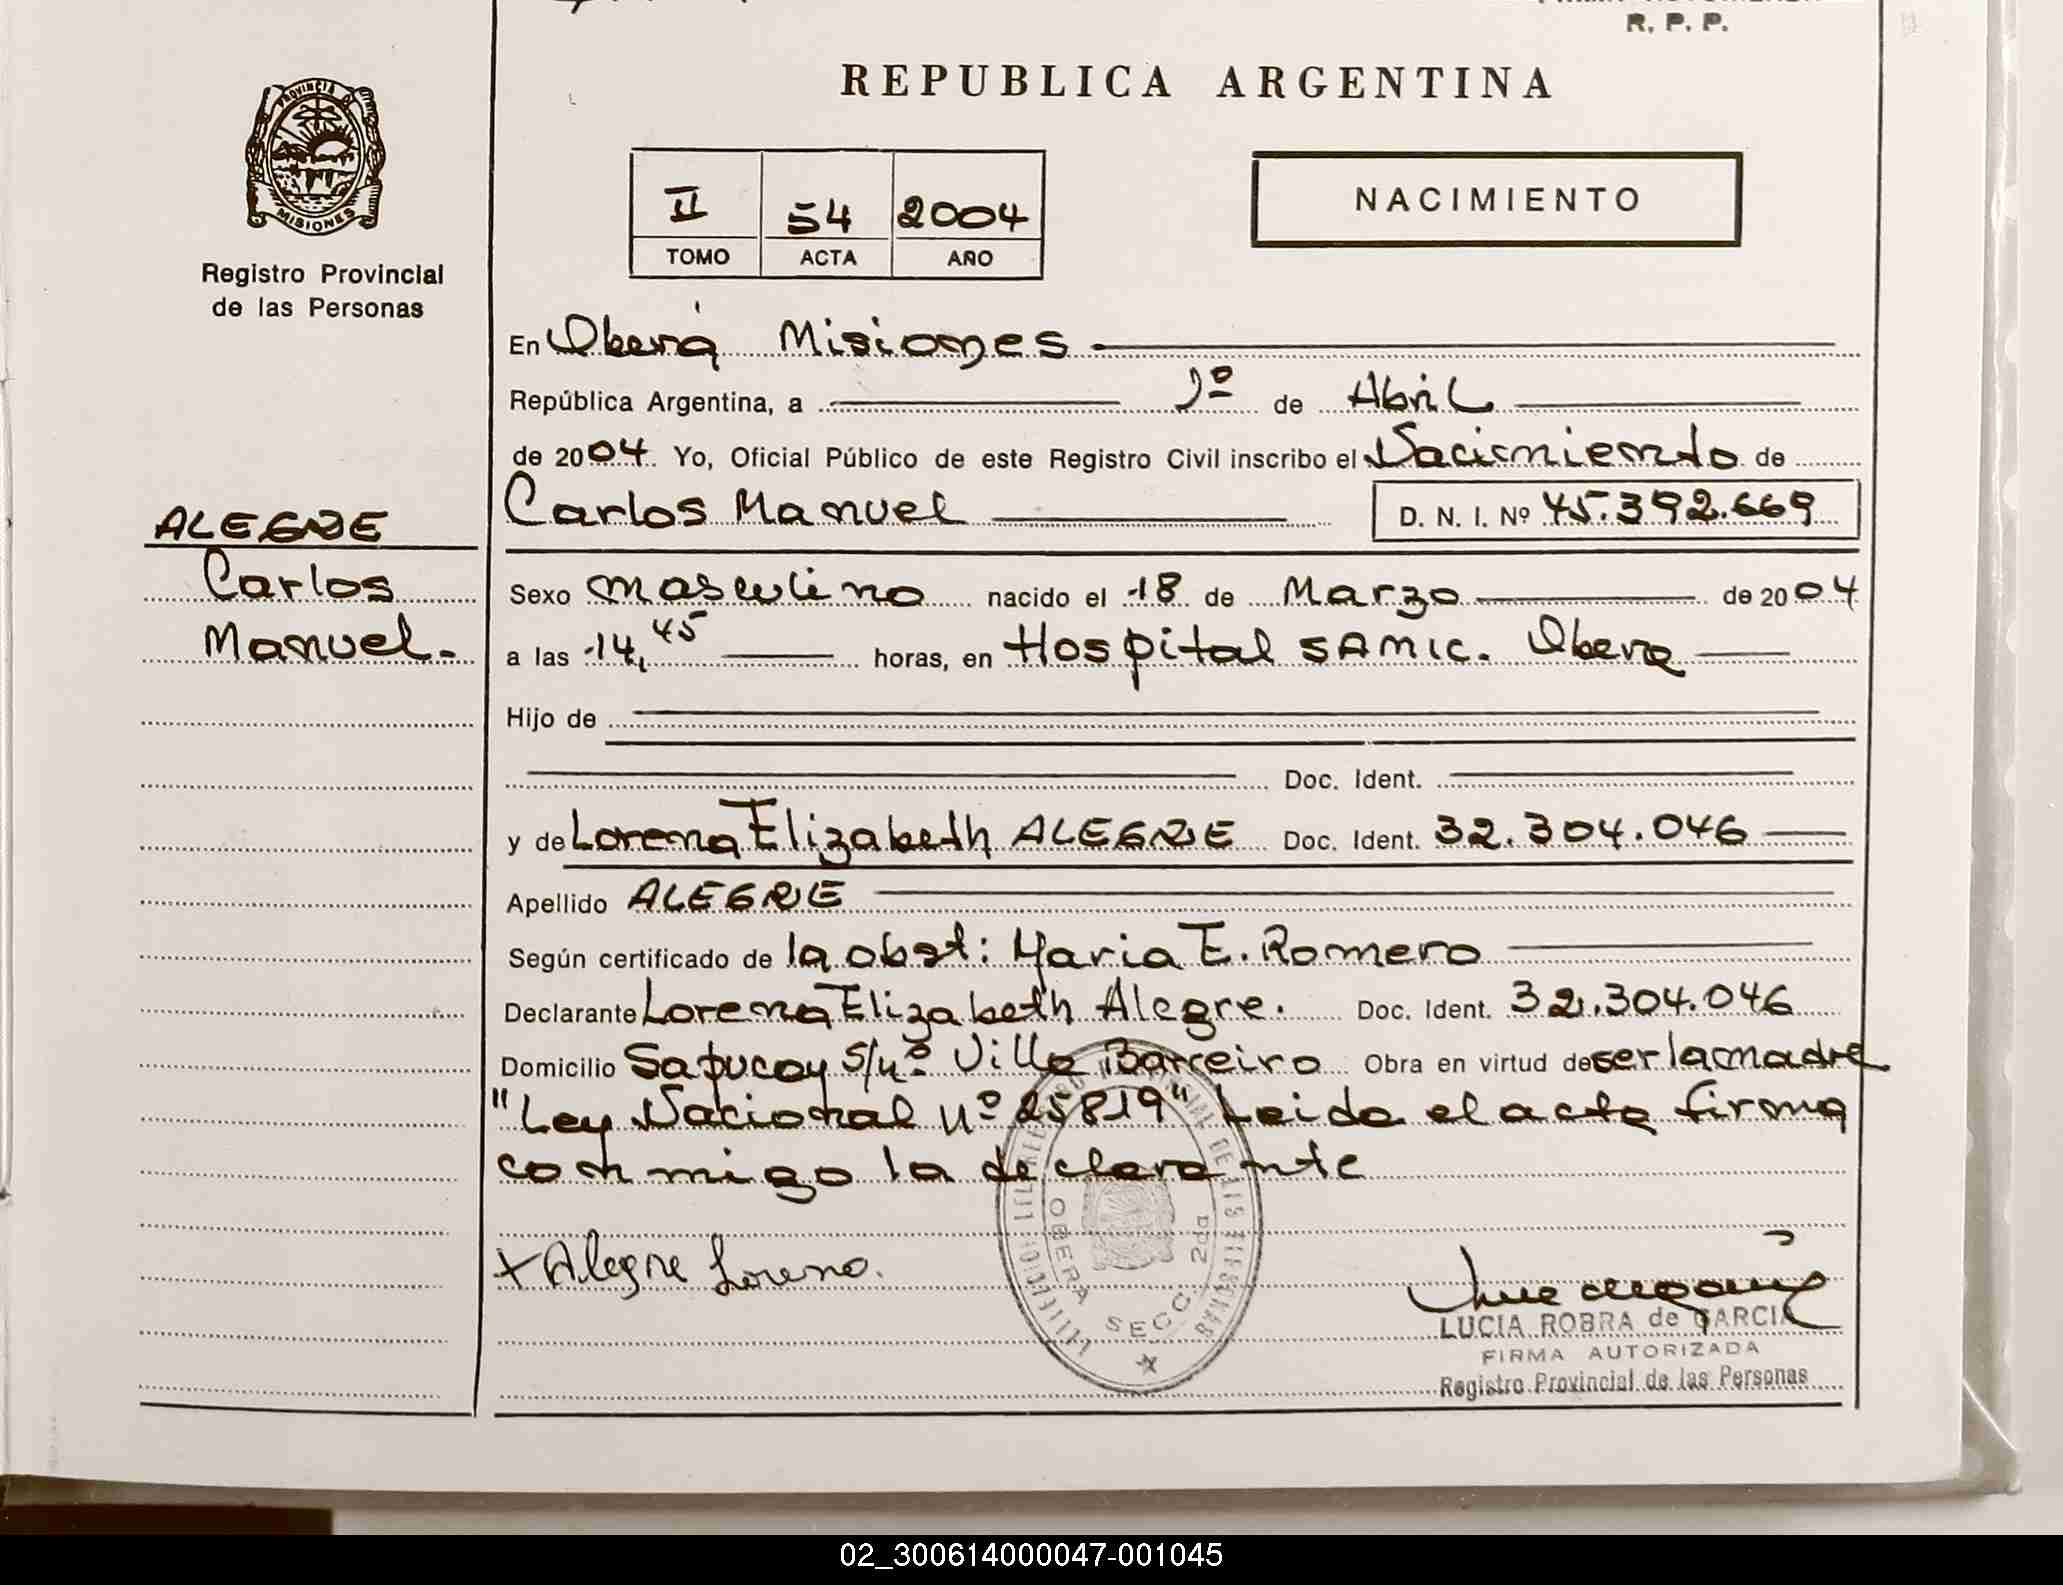 R. P. P.
REPUBLICA ARGENTINA
PROVINCIA DE
MISIONES
Registro Provincial
de las Personas
II 54 2004
TOMO ACTA AÑO
NACIMIENTO
En Oberá Misiones
República Argentina, a 1º de Abril
de 2004. Yo, Oficial Público de este Registro Civil inscribo el Nacimiento de
Carlos Manuel D. N. I. Nº 45.392.669
ALEGRE
Carlos
Manuel.
Sexo masculino nacido el 18 de Marzo de 2004
a las 14,45 horas, en Hospital SAMIC. Obera
Hijo de
Doc. Ident.
y de Lorena Elizabeth ALEGRE Doc. Ident. 32.304.046
Apellido ALEGRE
Según certificado de la obst: Maria E. Romero
Declarante Lorena Elizabeth Alegre. Doc. Ident. 32.304.046
Domicilio Sapucay S/nº Villa Barreiro Obra en virtud de ser la madre
"Ley Nacional Nº 25819" Leida el acta firma
conmigo la declarante
x Alegre Lorena.
OBERA SECC. 2da
LUCIA ROBRA de GARCIA
FIRMA AUTORIZADA
Registro Provincial de las Personas
02_300614000047-001045